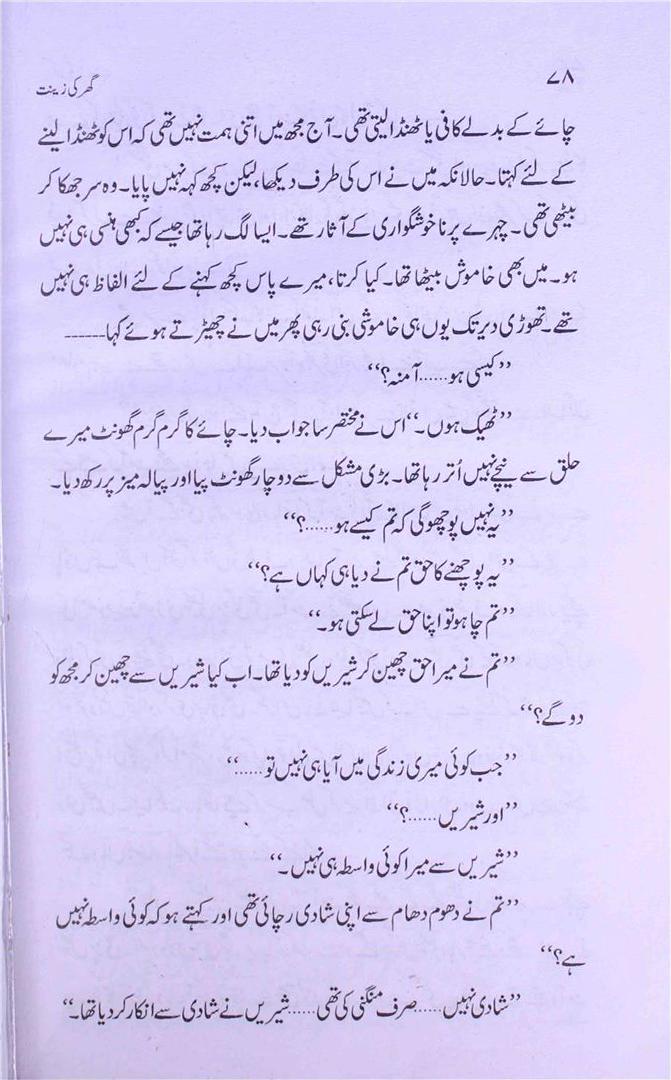 ۷۸
گھر کی زینت
چائے کے بدلے کافی یا ٹھنڈا لیتی تھی۔ آج مجھ میں اتنی ہمت نہیں تھی کہ اس کو ٹھنڈا لینے
کے لئے کہتا۔ حالانکہ میں نے اس کی طرف دیکھا، لیکن کچھ کہہ نہیں پایا۔ وہ سر جھکا کر
بیٹھی تھی۔ چہرے پر ناخوشگواری کے آثار تھے۔ ایسا لگ رہا تھا جیسے کہ کبھی ہنسی ہی نہیں
ہو۔ میں بھی خاموش بیٹھا تھا۔ کیا کرتا، میرے پاس کچھ کہنے کے لئے الفاظ ہی نہیں
تھے۔ تھوڑی دیر تک یوں ہی خاموشی بنی رہی پھر میں نے چھیڑتے ہوئے کہا------
’’کیسی ہو......آمنہ؟‘‘
’’ٹھیک ہوں۔‘‘ اس نے مختصر سا جواب دیا۔ چائے کا گرم گرم گھونٹ میرے
حلق سے نیچے نہیں اُتر رہا تھا۔ بڑی مشکل سے دو چار گھونٹ پیا اور پیالہ میز پر رکھ دیا۔
’’یہ نہیں پوچھوگی کہ تم کیسے ہو......؟‘‘
’’یہ پوچھنے کا حق تم نے دیا ہی کہاں ہے؟‘‘
’’تم چاہو تو اپنا حق لے سکتی ہو۔‘‘
’’تم نے میرا حق چھین کر شیریں کو دیا تھا۔ اب کیا شیریں سے چھین کر مجھ کو
دوگے؟‘‘
’’جب کوئی میری زندگی میں آیا ہی نہیں تو......‘‘
’’اور شیریں......؟‘‘
’’شیریں سے میرا کوئی واسطہ ہی نہیں۔‘‘
’’تم نے دھوم دھام سے اپنی شادی رچائی تھی اور کہتے ہو کہ کوئی واسطہ نہیں
ہے؟‘‘
’’شادی نہیں......صرف منگنی کی تھی......شیریں نے شادی سے انکار کر دیا تھا۔‘‘